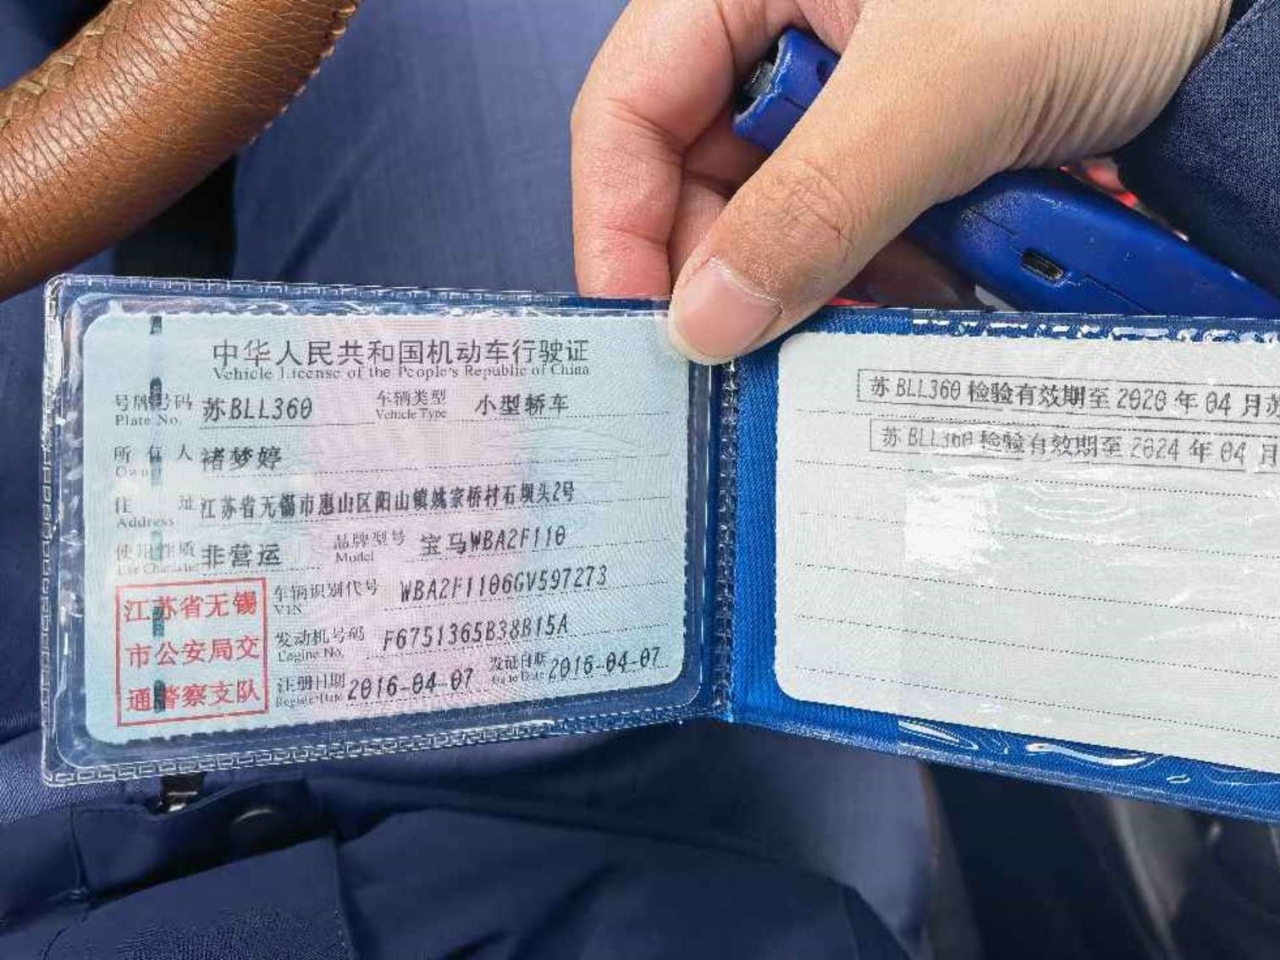 中华人民共和国机动车行驶证
Vehicle License of the People's Republic of China
号牌号码 苏BLL360 车辆类型 小型轿车
Plate No. Vehicle Type
所有人 褚梦婷
Owner
住址 江苏省无锡市惠山区阳山镇姚家桥村石坝头2号
Address
使用性质 非营运 品牌型号 宝马WBA2F110
Use Character Model
车辆识别代号 WBA2F1106GV597273
VIN
发动机号码 F6751365B38B15A
Engine No.
注册日期 2016-04-07 发证日期 2016-04-07
Register Date Issue Date
江苏省无锡
市公安局交
通警察支队
苏BLL360 检验有效期至 2020 年 04 月 苏
苏BLL360 检验有效期至 2024 年 04 月